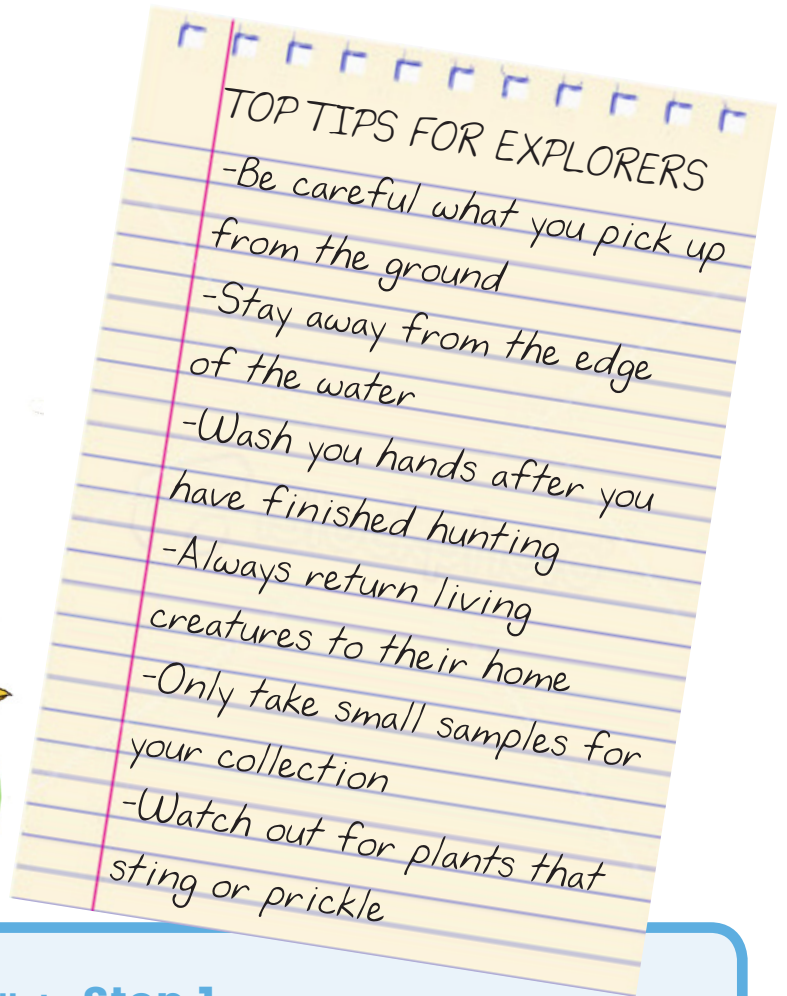 TOP TIPS FOR EXPLORERS
-Be careful what you pick up
from the ground
-Stay away from the edge
of the water
-Wash you hands after you
have finished hunting
-Always return living
creatures to their home
-Only take small samples for
your collection
-Watch out for plants that
sting or prickle
Step 1